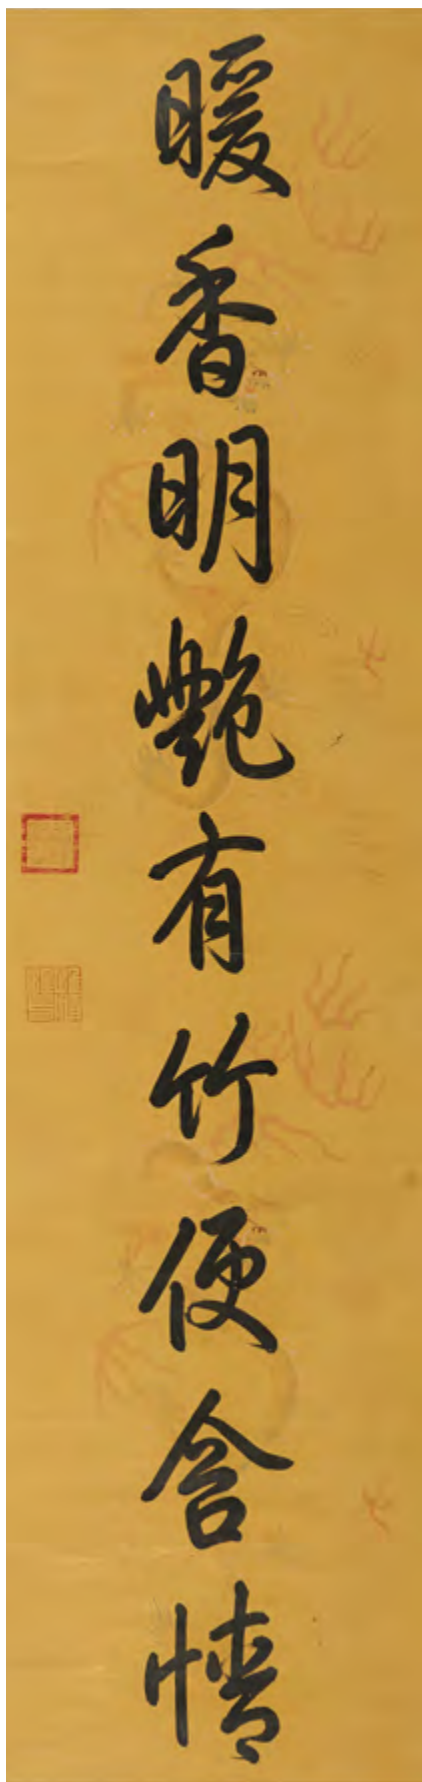 暖香明艷有竹便含情